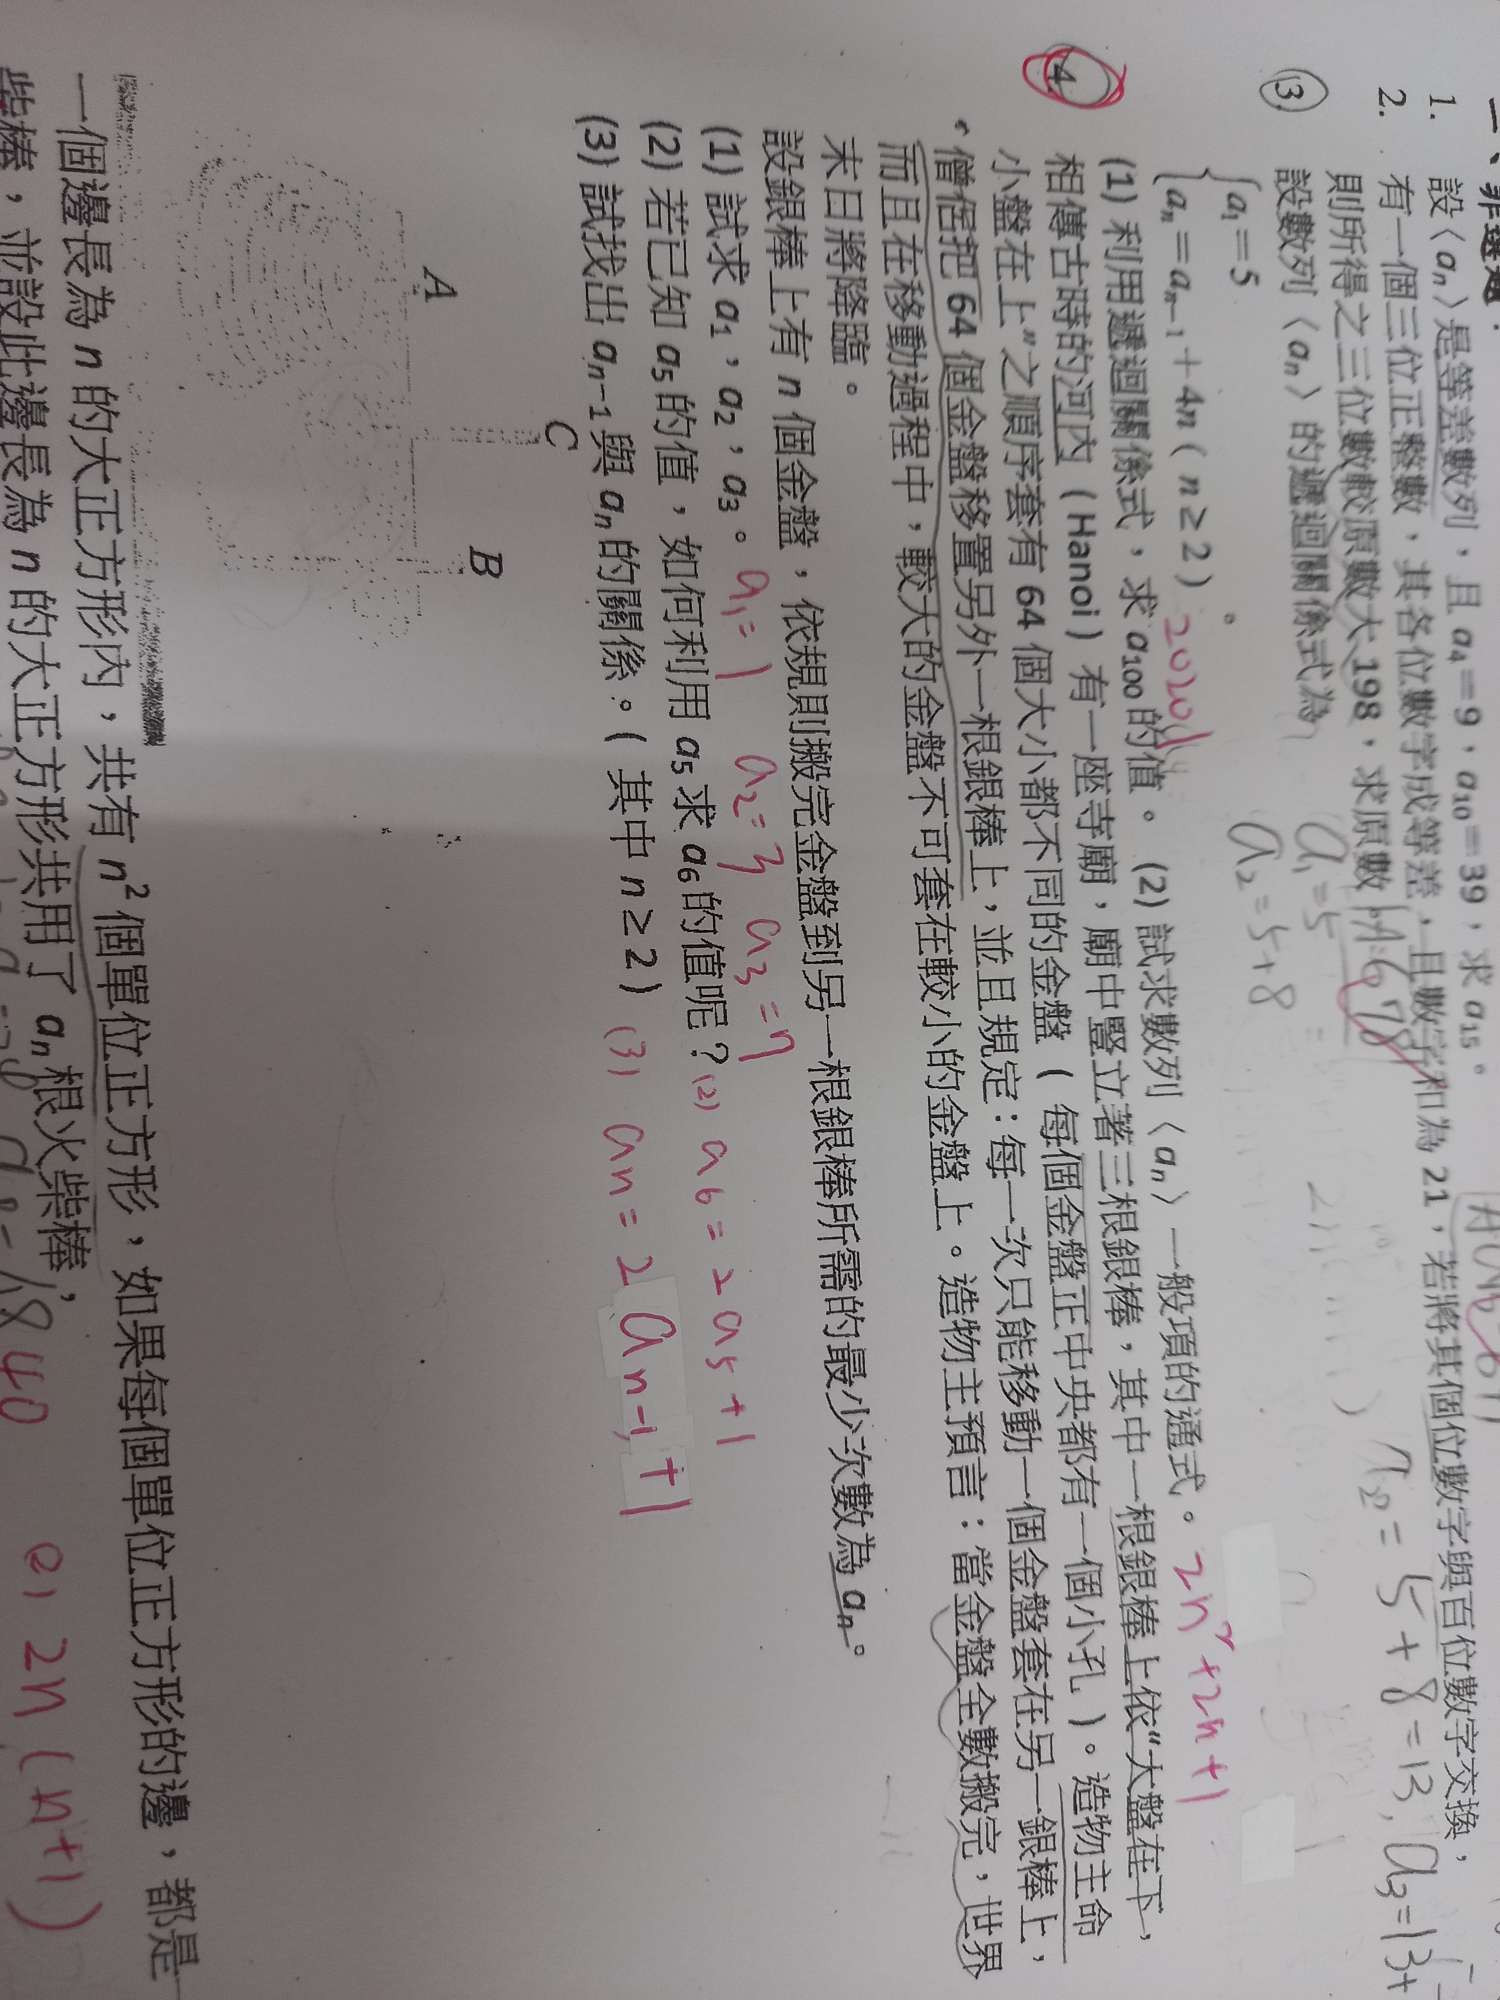 一、非選題：
1. 設〈aₙ〉是等差數列，且 a₄＝9，a₁₀＝39，求 a₁₅。
2. 有一個三位正整數，其各位數字成等差，且數字和為 21，若將其個位數字與百位數字交換，
則所得之三位數較原數大 198，求原數 678
③ 設數列〈aₙ〉的遞迴關係式為
a₁=5
a₂=5+8
a₂=5+8=13, a₃=13+
{a₁＝5
aₙ＝aₙ₋₁＋4n（n≥2）。
20201
2n²+2n+1
(1) 利用遞迴關係式，求 a₁₀₀ 的值。 (2) 試求數列〈aₙ〉一般項的通式。
4. 相傳古時的河內（Hanoi）有一座寺廟，廟中豎立著三根銀棒，其中一根銀棒上依“大盤在下，
小盤在上”之順序套有 64 個大小都不同的金盤（每個金盤正中央都有一個小孔）。造物主命
僧侶把 64 個金盤移置另外一根銀棒上，並且規定：每一次只能移動一個金盤套在另一銀棒上，
而且在移動過程中，較大的金盤不可套在較小的金盤上。造物主預言：當金盤全數搬完，世界
末日將降臨。
設銀棒上有 n 個金盤，依規則搬完金盤到另一根銀棒所需的最少次數為 aₙ。
(1) 試求 a₁，a₂，a₃。 a₁=1 a₂=3 a₃=7
(2) 若已知 a₅ 的值，如何利用 a₅ 求 a₆ 的值呢？ (2) a₆=2a₅+1
(3) 試找出 aₙ₋₁ 與 aₙ 的關係。（其中 n≥2） (3) aₙ=2aₙ₋₁+1
A
C
B
一個邊長為 n 的大正方形內，共有 n² 個單位正方形，如果每個單位正方形的邊，都是
柴棒，並設此邊長為 n 的大正方形共用了 aₙ 根火柴棒，
1840
(2) 2n(n+1)